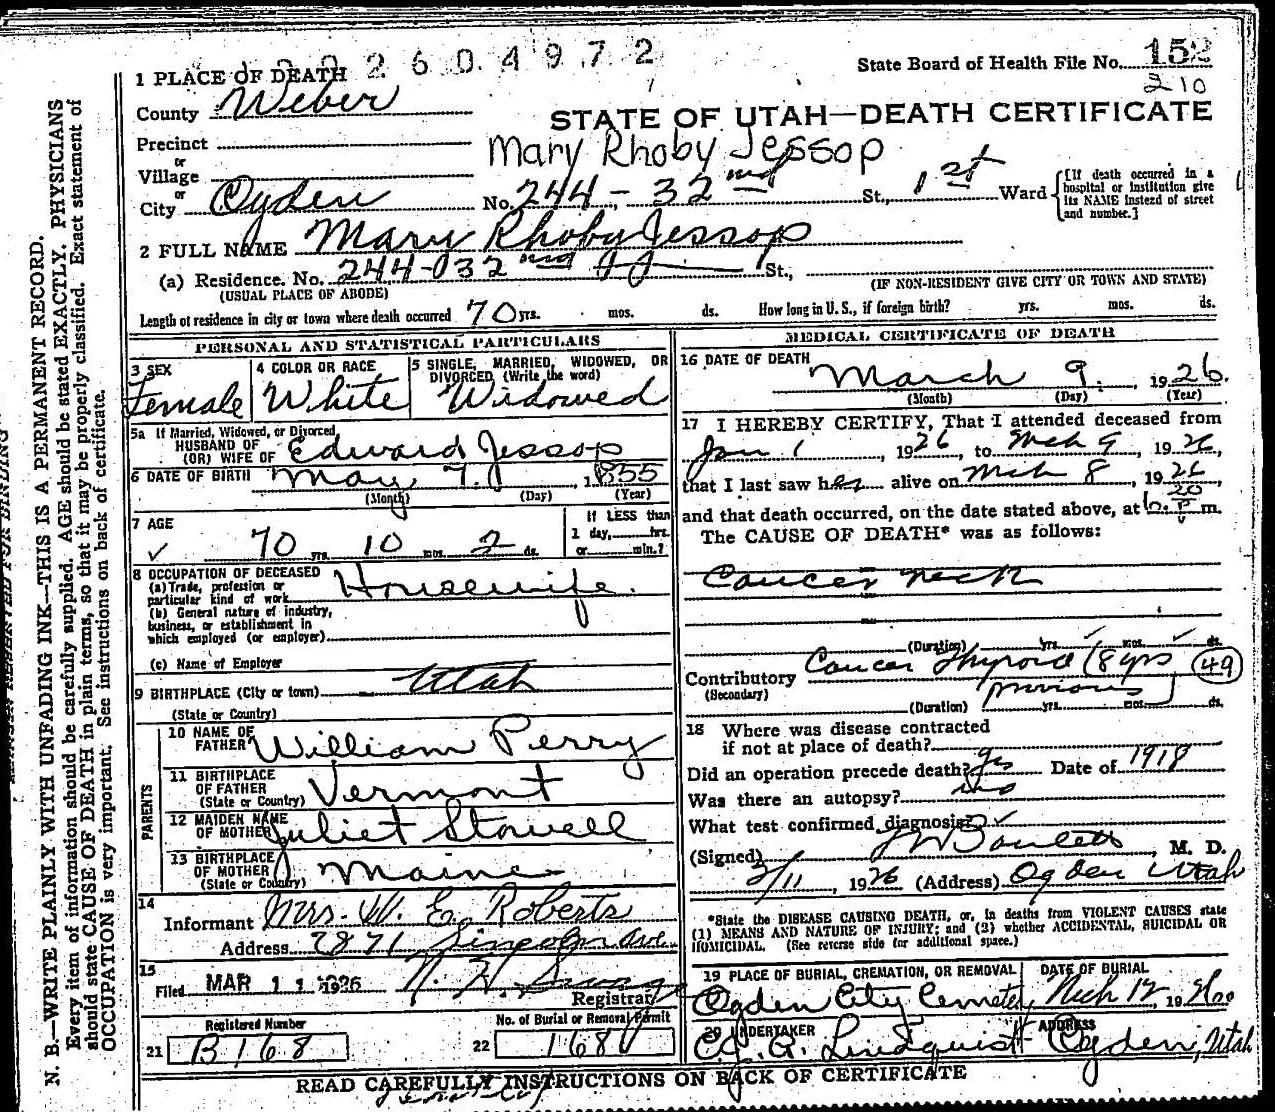 2604972
State Board of Health File No. 152
210
1 PLACE OF DEATH
County Weber
STATE OF UTAH—DEATH CERTIFICATE
Precinct
or
Village
Mary Rhoby Jessop
or
City Ogden No. 244-32nd St., 1st Ward
[If death occurred in a hospital or institution give its NAME instead of street and number.]
2 FULL NAME Mary Rhoby Jessop
(a) Residence. No. 244-32nd St.,
(USUAL PLACE OF ABODE) (IF NON-RESIDENT GIVE CITY OR TOWN AND STATE)
Length of residence in city or town where death occurred 70 yrs. mos. ds. How long in U. S., if foreign birth? yrs. mos. ds.
PERSONAL AND STATISTICAL PARTICULARS
3 SEX
Female
4 COLOR OR RACE
White
5 SINGLE, MARRIED, WIDOWED, OR DIVORCED (Write the word)
Widowed
5a If Married, Widowed, or Divorced
HUSBAND OF
(OR) WIFE OF Edward Jessop
6 DATE OF BIRTH May 7, 1855
(Month) (Day) (Year)
7 AGE
70 yrs. 10 mos. 2 ds.
If LESS than
1 day, hrs.
or min.?
8 OCCUPATION OF DECEASED
(a) Trade, profession or
particular kind of work Housewife.
(b) General nature of industry,
business, or establishment in
which employed (or employer)
(c) Name of Employer
9 BIRTHPLACE (City or town) Utah
(State or Country)
PARENTS
10 NAME OF
FATHER William Perry
11 BIRTHPLACE
OF FATHER
(State or Country) Vermont
12 MAIDEN NAME
OF MOTHER Juliet Stowell
13 BIRTHPLACE
OF MOTHER
(State or Country) Maine
14
Informant Mrs. W. E. Roberts
Address 2871 Lincoln Ave.
15
Filed MAR 11 1926
Registrar
Registered Number
21 B168
No. of Burial or Removal Permit
22 168
MEDICAL CERTIFICATE OF DEATH
16 DATE OF DEATH
March 9, 1926.
(Month) (Day) (Year)
17 I HEREBY CERTIFY, That I attended deceased from
Jan 1, 1926, to Mch 9, 1926,
that I last saw her alive on Mch 8, 1926,
and that death occurred, on the date stated above, at 6:20 P m.
The CAUSE OF DEATH* was as follows:
Cancer neck
(Duration) yrs. mos. ds.
Contributory Cancer Thyroid (8 yrs 49
(Secondary) previous)
(Duration) yrs. mos. ds.
18 Where was disease contracted
if not at place of death?
Did an operation precede death? yes Date of 1918
Was there an autopsy? no
What test confirmed diagnosis?
(Signed) M. D.
3/11, 1926 (Address) Ogden Utah
*State the DISEASE CAUSING DEATH, or, in deaths from VIOLENT CAUSES state
(1) MEANS AND NATURE OF INJURY; and (2) whether ACCIDENTAL, SUICIDAL OR
HOMICIDAL. (See reverse side for additional space.)
19 PLACE OF BURIAL, CREMATION, OR REMOVAL
Ogden City Cemetery
DATE OF BURIAL
Mch 12, 1926
20 UNDERTAKER
Lindquist
ADDRESS
Ogden, Utah
READ CAREFULLY INSTRUCTIONS ON BACK OF CERTIFICATE
N. B.—WRITE PLAINLY WITH UNFADING INK—THIS IS A PERMANENT RECORD.
Every item of information should be carefully supplied. AGE should be stated EXACTLY. PHYSICIANS
should state CAUSE OF DEATH in plain terms, so that it may be properly classified. Exact statement of
OCCUPATION is very important. See instructions on back of certificate.